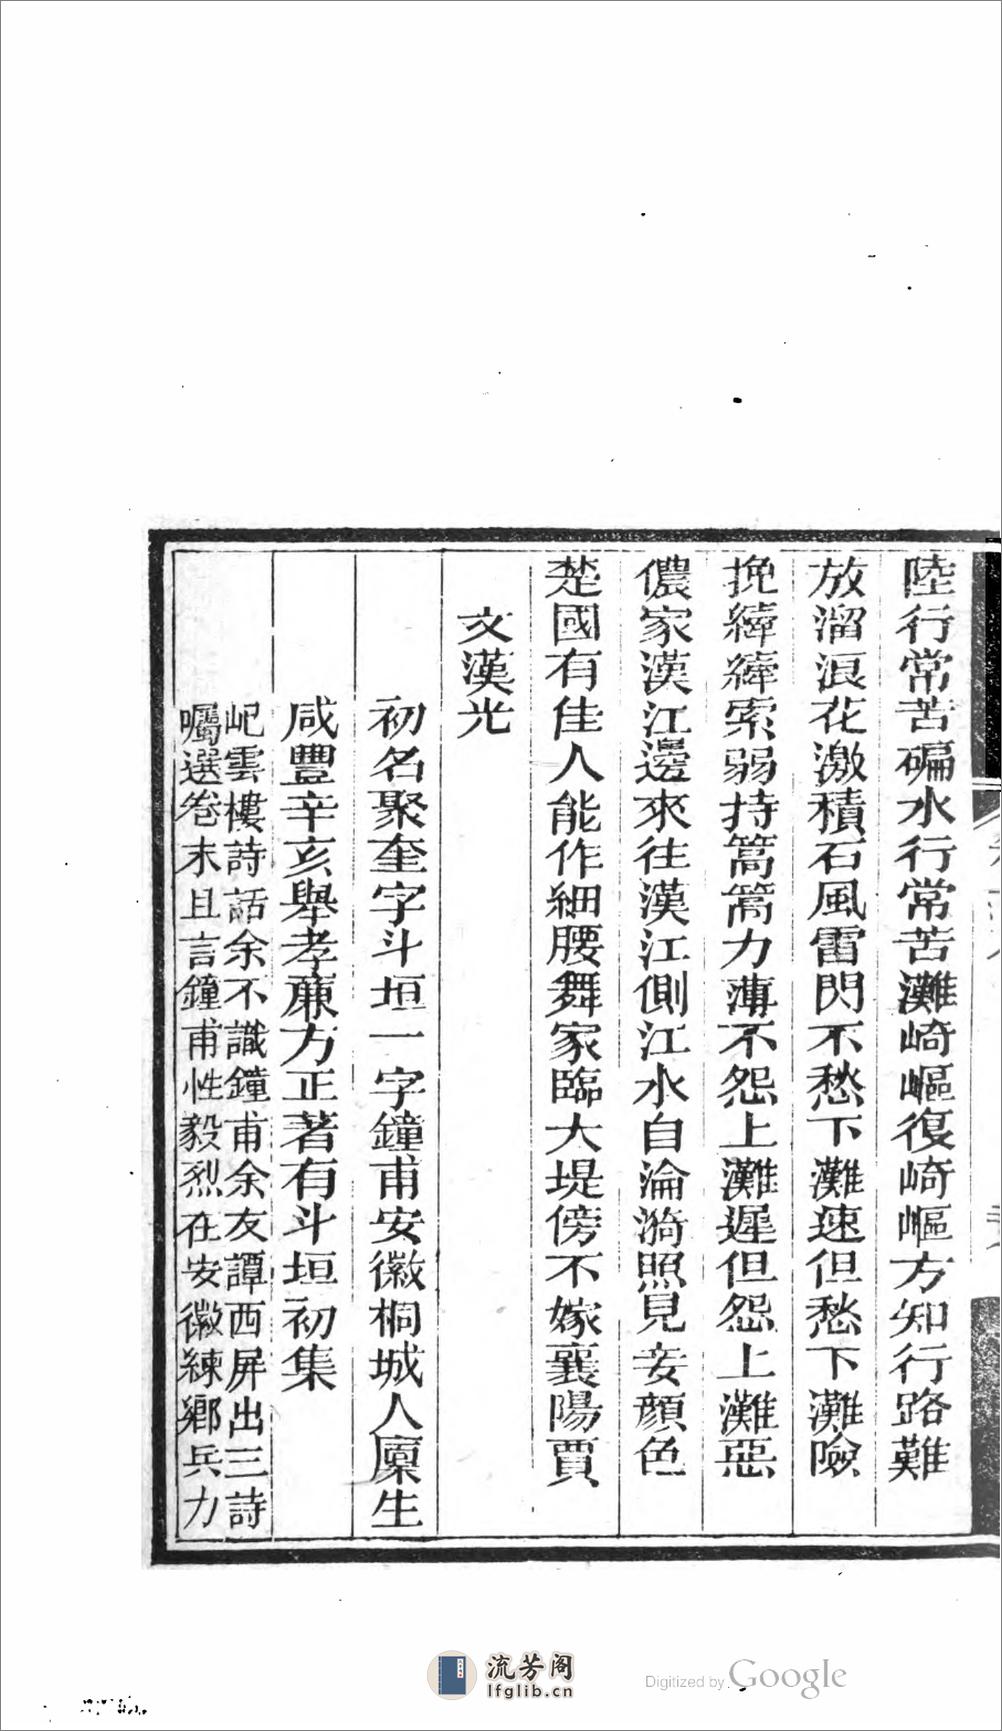 陸行常苦碥水行常苦灘崎嶇復崎嶇方知行路難
放溜浪花激積石風雷閃不愁下灘速但愁下灘險
挽繂繂索弱持篙篙力薄不怨上灘遲但怨上灘惡
儂家漢江邊來往漢江側江水自淪漪照見妾顏色
楚國有佳人能作細腰舞家臨大堤傍不嫁襄陽賈
文漢光
初名聚奎字斗垣一字鐘甫安徽桐城人廩生
咸豐辛亥舉孝廉方正著有斗垣初集
屺雲樓詩話余不識鐘甫余友譚西屏出三詩
囑選卷末且言鐘甫性毅烈在安徽練鄉兵力
流芳阁
lfglib.cn
Digitized by Google